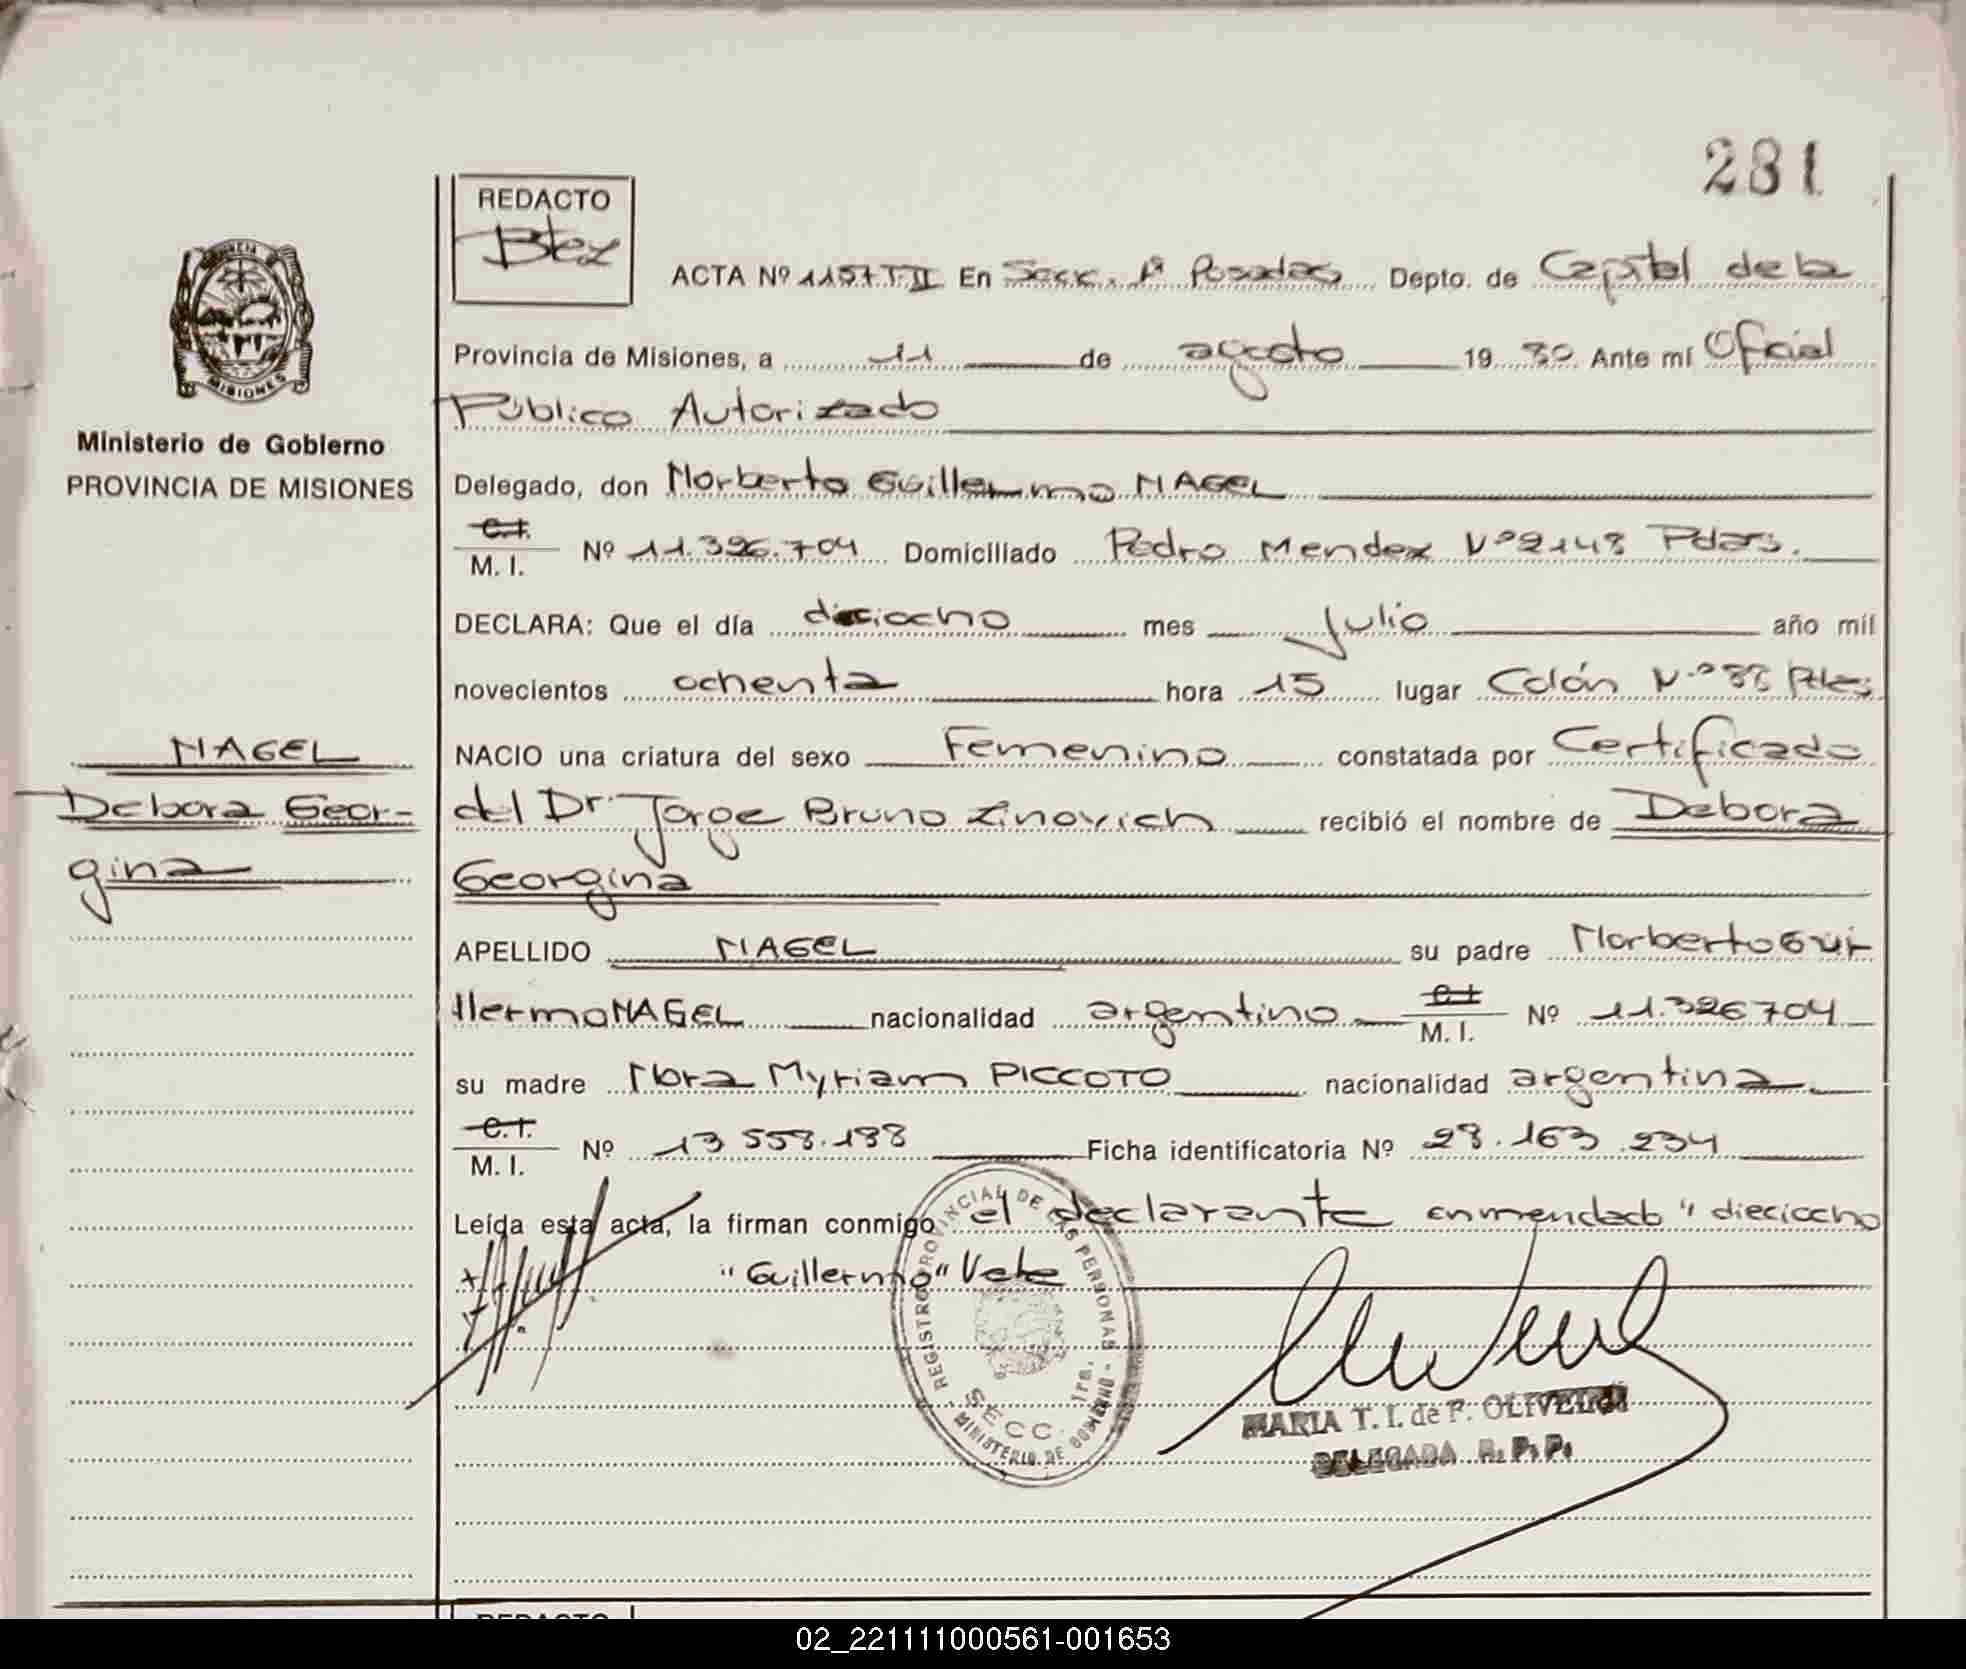 281
REDACTO
Btez
ACTA Nº 1157 T II En Secc. 1ª Posadas Depto. de Capital de la
Provincia de Misiones, a 11 de agosto 19 80 Ante mí Oficial
Público Autorizado
PROVINCIA
MISIONES
Ministerio de Gobierno
PROVINCIA DE MISIONES
Delegado, don Norberto Guillermo NAGEL
C.I.
M. I. Nº 11.326.704 Domiciliado Pedro Mendez Nº 2148 Pdas.
DECLARA: Que el día dieciocho mes Julio año mil
novecientos ochenta hora 15 lugar Colón Nº Pdas
NAGEL
Debora Geor-
gina
NACIO una criatura del sexo Femenino constatada por Certificado
del Dr. Jorge Bruno Zinovich recibió el nombre de Debora
Georgina
APELLIDO NAGEL su padre Norberto Gui-
llermo NAGEL nacionalidad argentino C.I.
M. I. Nº 11.326704
su madre Nora Myriam PICCOTO nacionalidad argentina
C.I.
M. I. Nº 13 558.188 Ficha identificatoria Nº 28.163.234
Leída esta acta, la firman conmigo el declarante enmendado "dieciocho
"Guillermo" Vale
REGISTRO PROVINCIAL DE LAS PERSONAS
SECC. 1ra.
- MINISTERIO DE GOBIERNO -
MARIA T. I. de F. OLIVEIRA
DELEGADA R. P. P.
REDACTO
02_221111000561-001653